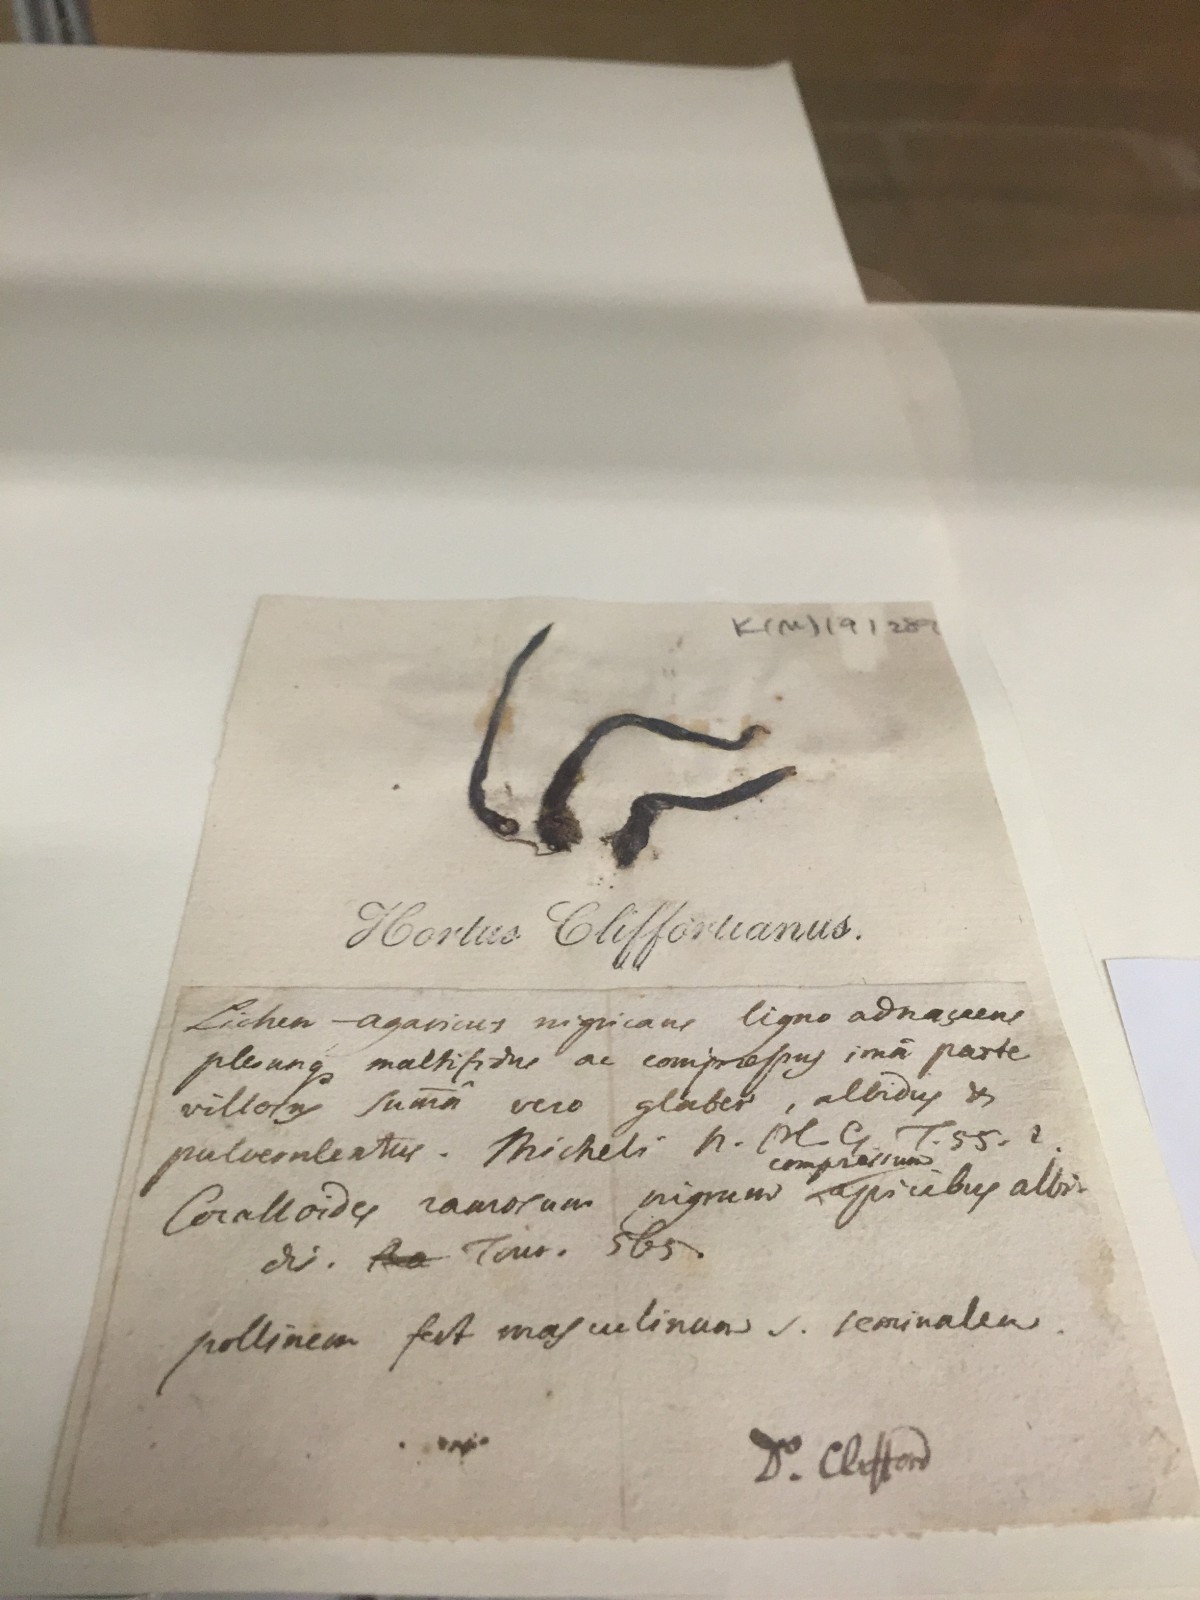 K(M) 191289
Hortus Cliffortianus.
Lichen-agaricus nigricans ligno adnascens
plerunq multifidus ac compressus imâ parte
villosus sum̄â vero glaber, albidus &
pulverulentus. Micheli n. G. T. 55.
compressum
Coralloides ramosum nigrum apicibus albi
dis. Tour. 565.
pollinem fert masculinum s. seminalem.
Do. Clifford